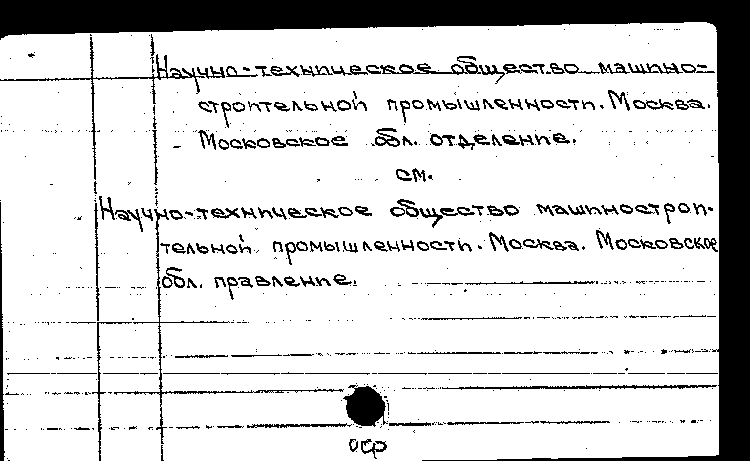 Научно-техническое общество машино-
строительной промышленности. Москва.
Московское обл. отделение.
см.
Научно-техническое общество машинострои-
тельной промышленности. Москва. Московское
обл. правление.
оср